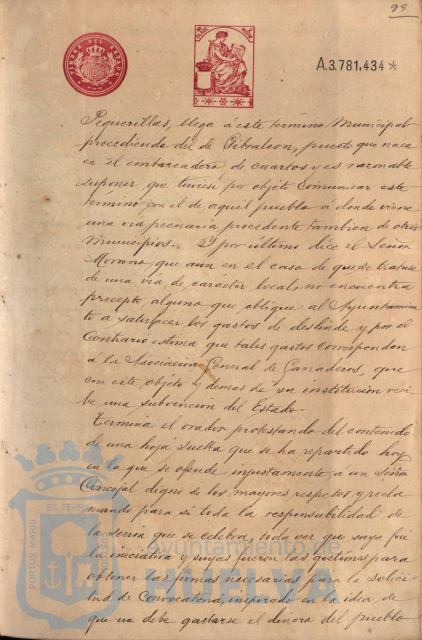 95
TIMBRE DEL ESTADO
A.3.781.434*
Peguerillas, llega á este término Municipal
procediendo del de Gibraleon, puesto que nace
en el embarcadero de cuartos y es razonable
suponer que tuviese por objeto comunicar este
termino con el de aquel pueblo á donde viene
una via pecuaria procedente tambien de otros
Municipios. Y por último dice el Señor
Morano que aun en el caso de que se tratase
de una via de caracter local, no encuentra
precepto alguno que obligue al Ayuntamien
to a satisfacer los gastos de deslinde y por el
Contrario estima que tales gastos corresponden
a la Asociacion General de Ganaderos, que
con este objeto y demas de su institucion reci
be una subvencion del Estado.
Termina el orador protestando del contenido
de una hoja suelta que se ha repartido hoy
en la que se ofende injustamente á un Señor
Concejal digno de los mayores respetos y recla
mando para si toda la responsabilidad de
la sesion que se celebra, toda vez que suya fué
la iniciativa y suyas fueron las gestiones para
obtener las firmas necesarias para la solici
tud de Convocatoria, inspirado en la idea de
que no debe gastarse el dinero del pueblo
PORTUS MARIS ET TERRAE
Ayuntamiento de
HUELVA